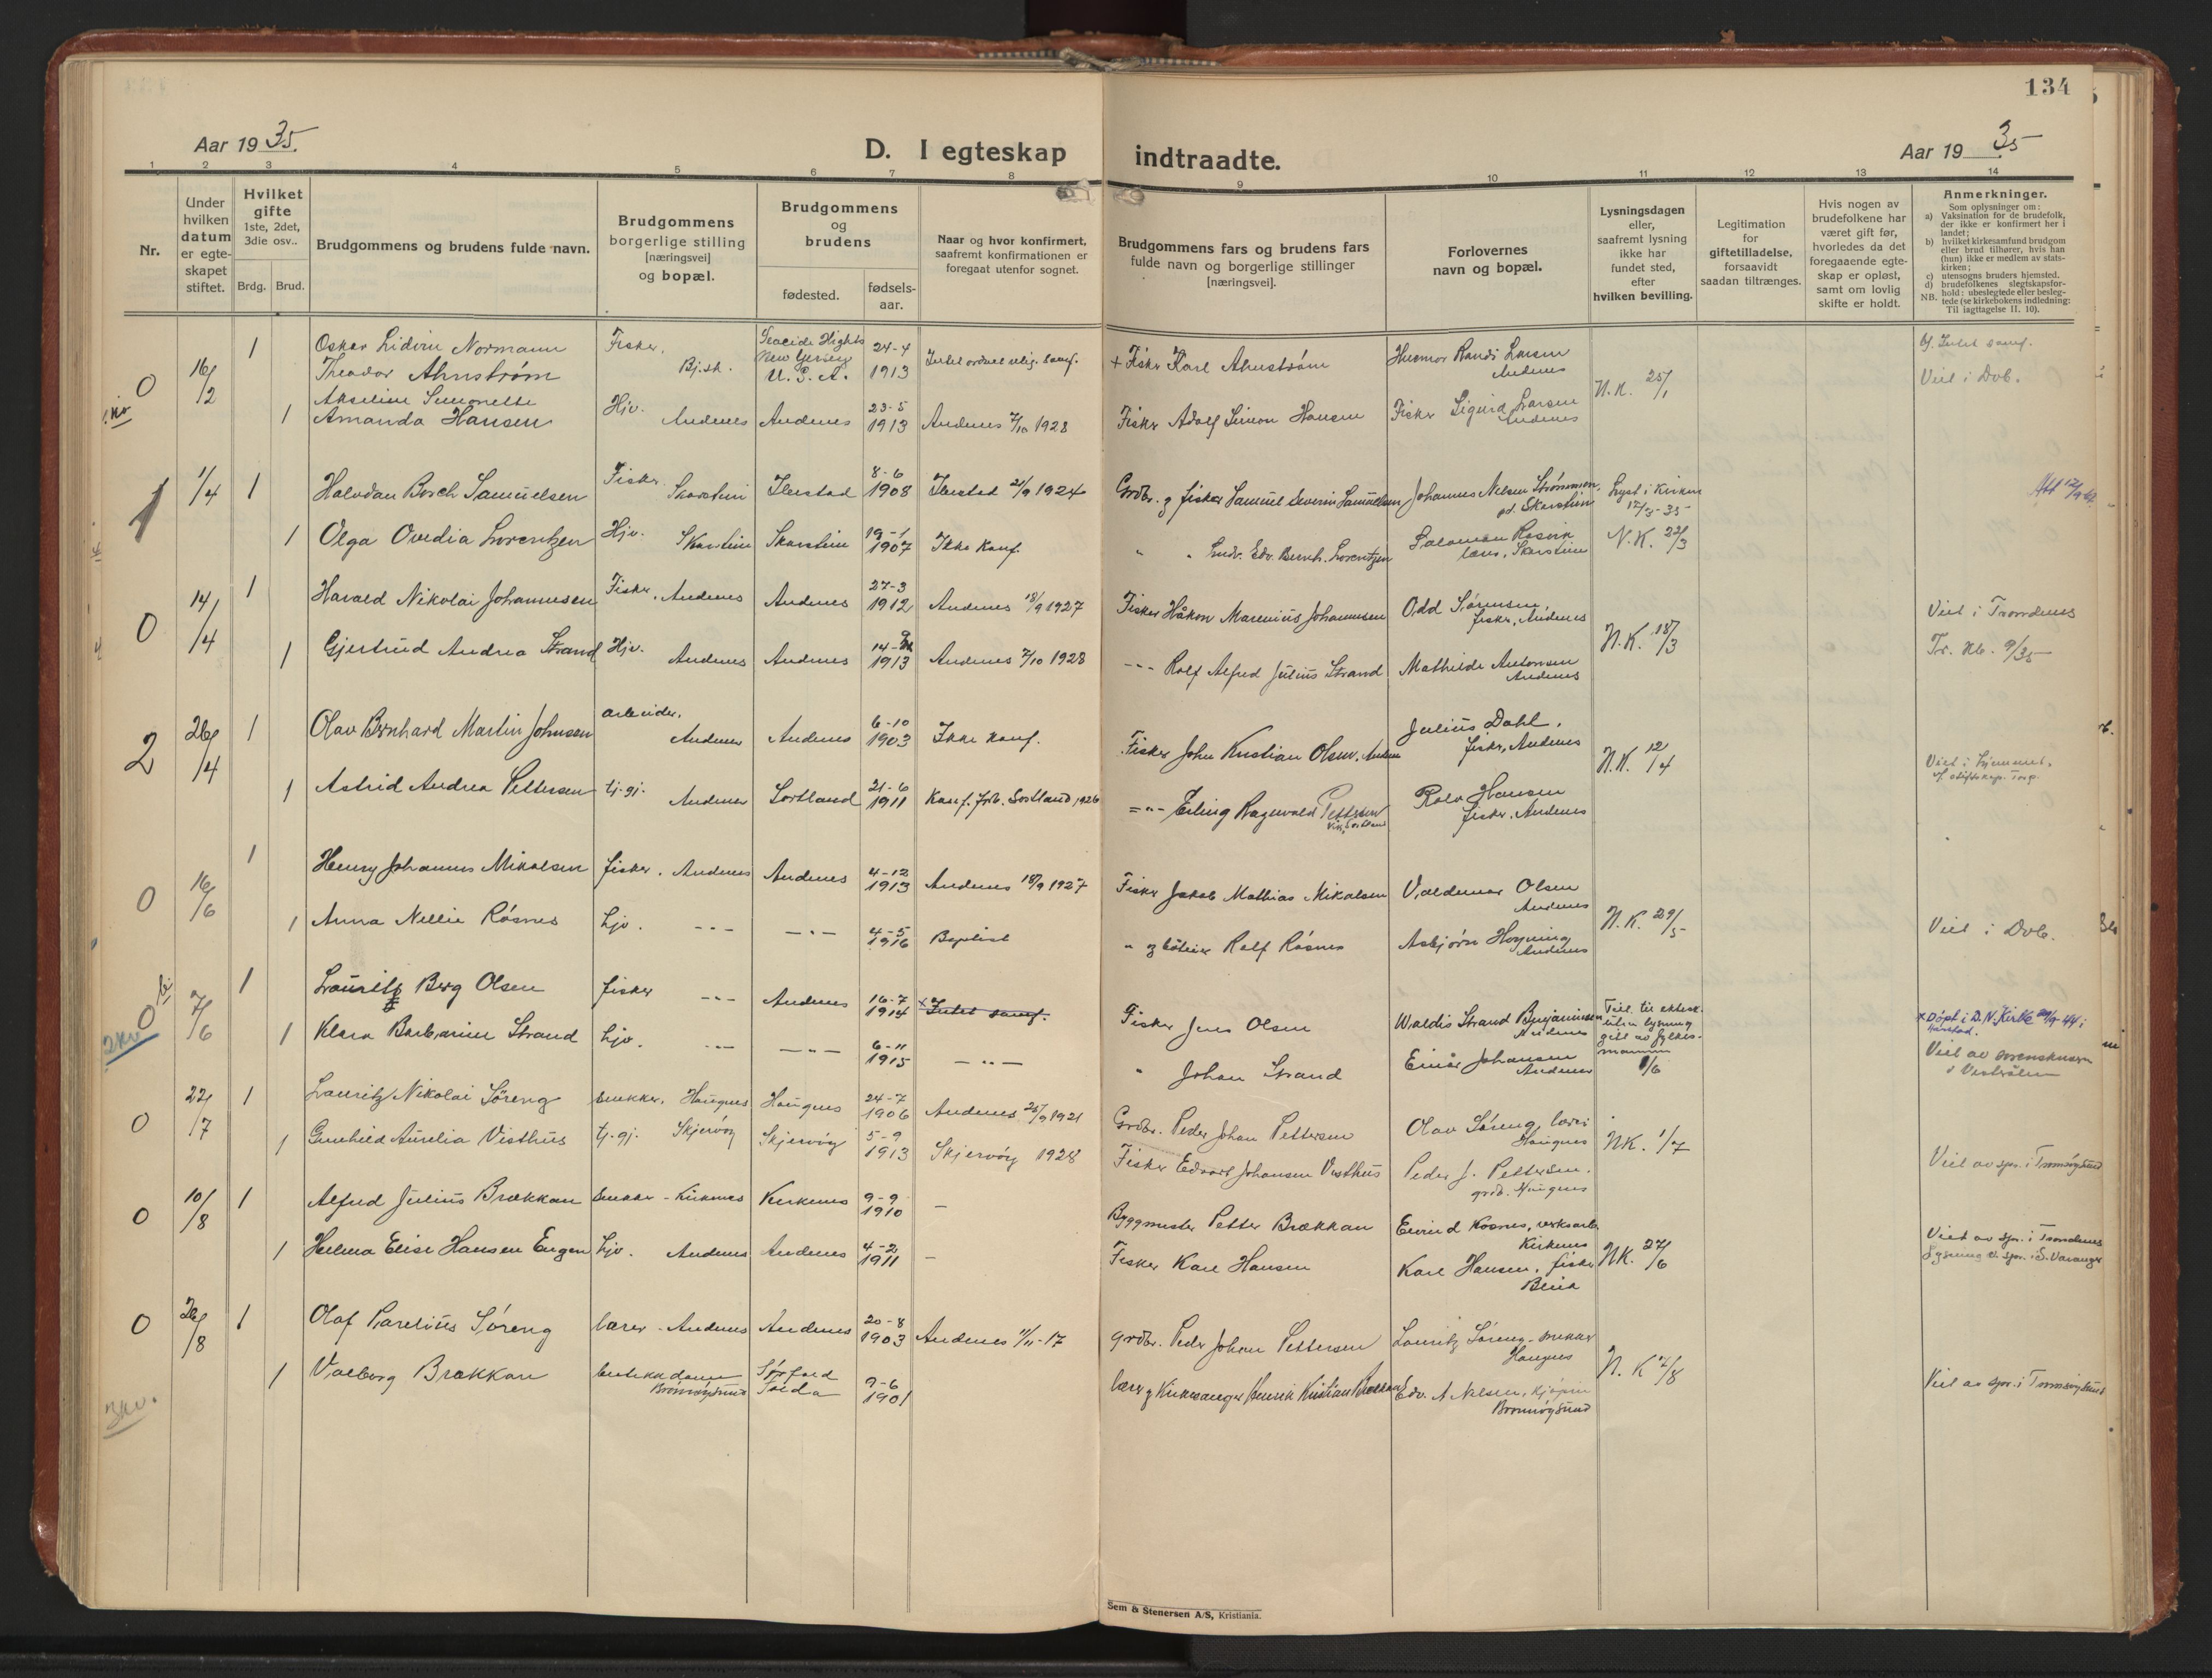 134
Aar 1935.
D. I egteskap indtraadte.
Aar 1935
1 2 3 4 5 6 7 8 9 10 11 12 13 14
Nr.
Under hvilken datum er egteskapet stiftet.
Hvilket gifte 1ste, 2det, 3die osv..
Brdg. Brud.
Brudgommens og brudens fulde navn.
Brudgommens borgerlige stilling [næringsvei] og bopæl.
Brudgommens og brudens
fødested.
fødsels-aar.
Naar og hvor konfirmert, saafremt konfirmationen er foregaat utenfor sognet.
Brudgommens fars og brudens fars fulde navn og borgerlige stillinger [næringsvei].
Forlovernes navn og bopæl.
Lysningsdagen eller, saafremt lysning ikke har fundet sted, efter hvilken bevilling.
Legitimation for giftetilladelse, forsaavidt saadan tiltrænges.
Hvis nogen av brudefolkene har været gift før, hvorledes da det foregaaende egteskap er opløst, samt om lovlig skifte er holdt.
Anmerkninger.
Som oplysninger om:
a) Vaksination for de brudefolk, der ikke er konfirmert her i landet;
b) hvilket kirkesamfund brudgom eller brud tilhører, hvis han (hun) ikke er medlem av statskirken;
c) utensogns bruders hjemsted.
d) brudefolkenes slegtskapsforhold: ubeslegtede eller beslegtede (se kirkebokens indledning:
NB. Til iagttagelse II. 10).
0 16/2 1 Oskar Lidvin Normann Theodor Ahnstrøm Fisker, Bj.sk. U. S. A. 24-4 1913 + Fisker Karl Ahnstrøm Husmor Randi Larsen Andenes N.K. 25/1
1 Akseline Simonette Amanda Hansen Hjv. Andenes Andenes 23-5 1913 Andenes 7/10 1928 Fisker Adolf Simon Hansen Fisker Sigurd Larsen Andenes Viet i Dvb.
1 1/4 1 Halvdan Borch Samuelsen Fisker Skarstein Ibestad 8-6 1908 Ibestad 21/9 1924 Grdbr. g fisker Samuel Severin Samuelsen Johannes Nelsen Strømmen, Skarstein Lyst i kirken
1 Olga Ovedia Lorentzen Hjv. Skarstein Skarstein 19-1 1907 Ikke konf. " " Edv. Bernh. Lorentzen Salomon Røsvik Skarstein N.K. 22/3
0 14/4 1 Harald Nikolai Johannesen Fisker, Andenes Andenes 27-3 1912 Andenes 18/9 1927 Fisker Håkon Marenius Johannesen Odd Sørensen fisker, Andenes N.K. 18/3 Viet i Trondenes
1 Gjertrud Andrea Strand Hjv. Andenes Andenes 1913 Andenes 7/10 1928 -"- Rolf Alfred Julius Strand Mathilde Antonsen Andenes
2 26/4 1 Olav Bernhard Martin Johnsen arbeider, Andenes Andenes 6-10 1903 Ikke konf. Fisker John Kristian Olsen, Andenes Julius Dahl, fisker, Andenes N.K. 12/4
1 Astrid Andrea Pettersen tj.gj. Andenes Sortland 21-6 1911 Konf. Sortland 1926 -"- Erling Ragnvald Pettersen Rolv Hansen fisker, Andenes
0 16/6 1 Henry Johannes Mikalsen fisker. Andenes Andenes 4-12 1913 Andenes 18/9 1927 Fisker Jakob Mathias Mikalsen Valdemar Olsen Andenes N.K. 29/5
1 Anna Nellie Røsnes hjv. -"- -"- 4-5 1916 Baptist " Rolf Røsnes Asbjørn Høyning Andenes Viet i Dvb.
0 7/6 1 Lauritz Berg Olsen fisker -"- Andenes 16-7 1914 Fisker Jens Olsen Waldis Strand Benjaminsen Andenes 1/6
2kv
1 Klara Barbarine Strand hjv. -"- -"- 6-11 1915 -"- " Johan Strand Einar Johansen Andenes
x Døpt i D. N. Kirke 44 i Harstad.
0 22/7 1 Lauritz Nikolai Søreng snekker. Haugnes Haugnes 24-7 1906 Andenes 25/9 1921 Grdbr. Peder Johan Pettersen Olav Søreng, lærer Haugnes NK. 1/7
1 Gunhild Aurelia Visthus tj.gj. Skjervøy Skjervøy 5-9 1913 Skjervøy 1928 Fisker Edvart Johansen Visthus Peder J. Pettersen. grdb. Haugnes Viet av spr. i Tromsøysund
0 10/8 1 Alfred Julius Brækkan Kirkenes Kirkenes 9-9 1910 - Byggmester Petter Brækkan Eivind Kosnes, verksarb. Kirkenes NK. 27/6 Viet av spr. i Trondenes
1 Helma Elise Hansen Eugen hjv. Andenes Andenes 4-2 1911 - Fisker Karl Hansen Karl Hansen, fisker Bleik Lysning v. spr. i S. Varanger
0 26/8 1 Olaf Parelius Søreng lærer - Andenes Andenes 20-8 1903 Andenes 11/11-17 grdbr. Peder Johan Pettersen Lauritz Søreng - snekker Haugnes N.K 7/8
1 Valborg Brækkan butikkdame Brønnøysund Sørfold Folda 9-6 1901 lærer g Kirkesanger Henrik Kristian Brækkan Edv. A Nelsen, kjøpm Brønnøysund Viet av spr. i Tromsøysund
3kv.
Sem & Stenersen A/S, Kristiania.